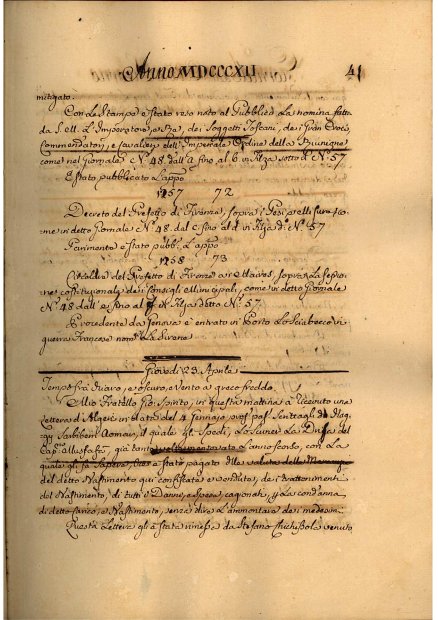 Anno MDCCCXII 41
mitigato.
Con le Stampe è Stato reso noto al Pubblico la nomina fatta
da S. M. L'Imperatore, e Rè, dei Soggetti Toscani, dei Gran Croci,
Commendatori, e Cavalieri dell'Imperiale Ordine della Riunione
come nel Giornale N.º 48. dall'a fino al b in filza sotto d. N.º 57
È stato pubblicato l'appo
1257 72
Decreto del Prefetto di Firenze, sopra i Pesi
me in detto Giornale N.º 48. dal c fino al d in filza d.º N.º 57
Parimente è stato pubb.º l'appo
1258 73
Circolare del Prefetto di Firenze ai Maires, sopra la Sessio
ne dei Consigli Municipali, come in detto Giornale
N.º 48 dall'e fino al in filza detto N.º 57.
Procedente da Genova è entrato in Porto lo Sciabecco
Francese nom.º La Sirena
Giovedì 23 Aprile
Tempo frà chiaro, e oscuro, vento a greco freddo.
Mio Fratello Gio: Spirito, in questa mattina à ricevuto una
Lettera d'Algeri in data del 4 Gennajo
il quale gli Spedì,
Cap.º già tanto Lanno scorso, con la
quale gli fà è stato pagato
del detto Bastimento qui confiscato e venduto, dei trattenimenti
del Bastimento, di tutti i Danni, e Spese cagionati, e la condanna
di detto Carico, e Bastimento, senza dire l'ammontare dei medesimi.
Questa Lettera gli è stata rimessa da Stefano venuto